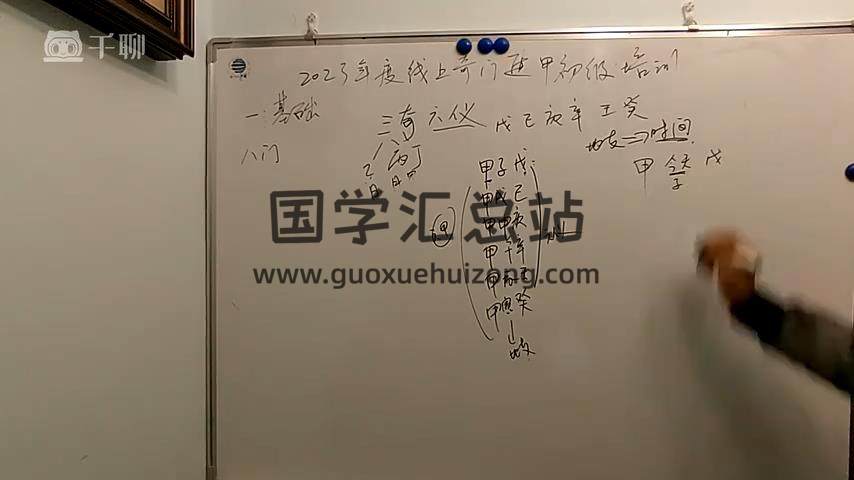 千聊
2023年度线上奇门遁甲初级培训
一:基础
三奇 六仪 戊己庚辛壬癸
八门
乙丙丁
日月
地支⇒时间
甲 今天 戊
子
甲子戊
甲戌己
甲申庚
甲午辛
甲辰壬
甲寅癸
地支
国学汇总站
www.guoxuehuizong.com